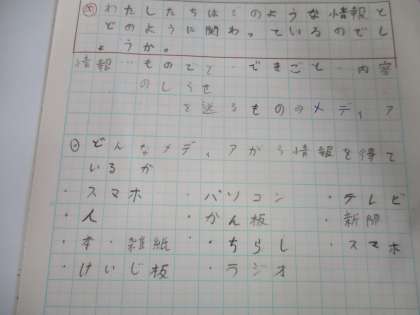 め わたしたちはどのような情報と
どのように関わっているのでし
ょうか。
情報…ものごとて…できごと…内容
のしらせ
を送るもの→メディア
○ どんなメディアから情報を得て
いるか
・スマホ ・パソコン ・テレビ
・人 ・かん板 ・新聞
・本・雑紙 ・ちらし ・スマホ
・けいじ板 ・ラジオ